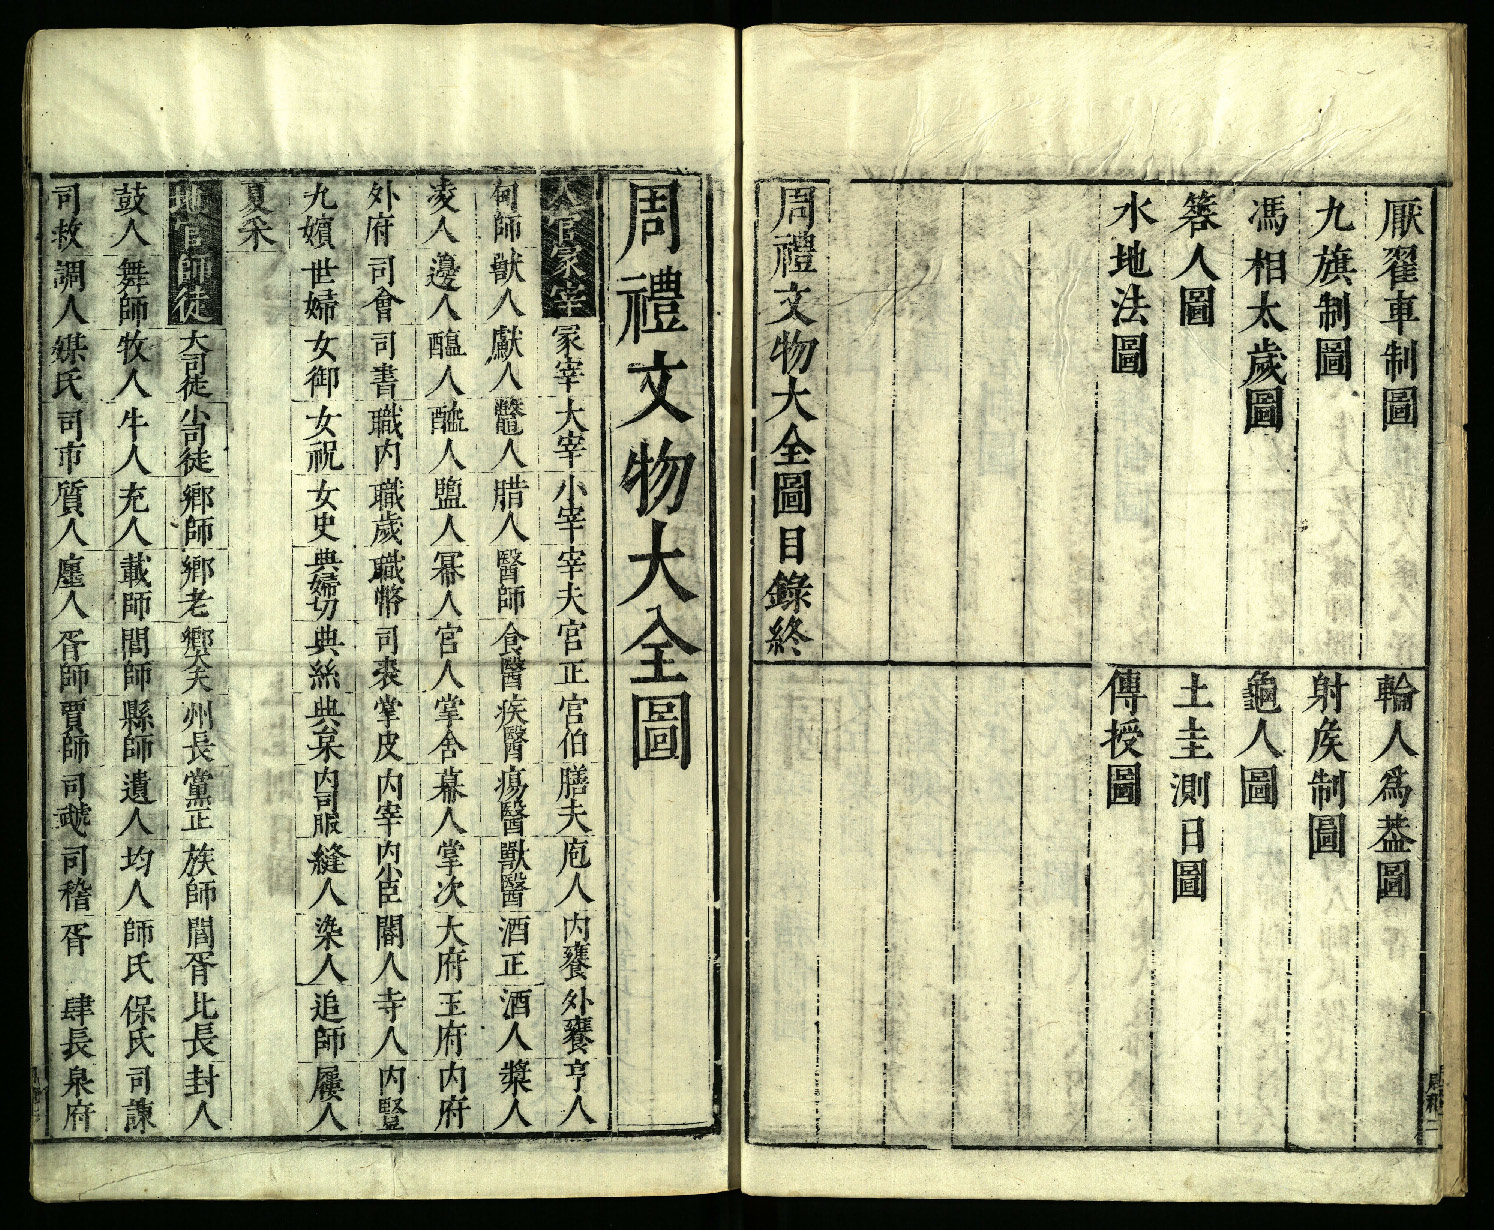 厭翟車制圖
輪人爲葢圖
九旗制圖
射矦制圖
馮相太歲圖
龜人圖
簭人圖
土圭測日圖
水地法圖
傳授圖
周禮文物大全圖目錄終
周禮文物大全圖
天官冢宰 冢宰 大宰 小宰 宰夫 宫正 宫伯 膳夫 庖人 内饔 外饔 亨人
甸師 獸人 䱷人 鼈人 腊人 醫師 食醫 疾醫 瘍醫 獸醫 酒正 酒人 漿人
凌人 籩人 醢人 醯人 鹽人 冪人 宫人 掌舍 幕人 掌次 大府 玉府 内府
外府 司會 司書 職内 職歲 職幣 司裘 掌皮 内宰 内小臣 閽人 寺人 内豎
九嬪 世婦 女御 女祝 女史 典婦功 典絲 典枲 内司服 縫人 染人 追師 屨人
夏采
地官師徒 大司徒 小司徒 鄉師 鄉老 鄉大夫 州長 黨正 族師 閭胥 比長 封人
鼓人 舞師 牧人 牛人 充人 載師 閭師 縣師 遺人 均人 師氏 保氏 司諫
司救 調人 媒氏 司市 質人 廛人 胥師 賈師 司虣 司稽 胥 肆長 泉府